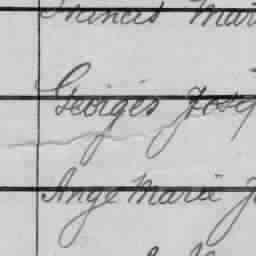 Francis Mar
Georges Josep
Ange Marie J